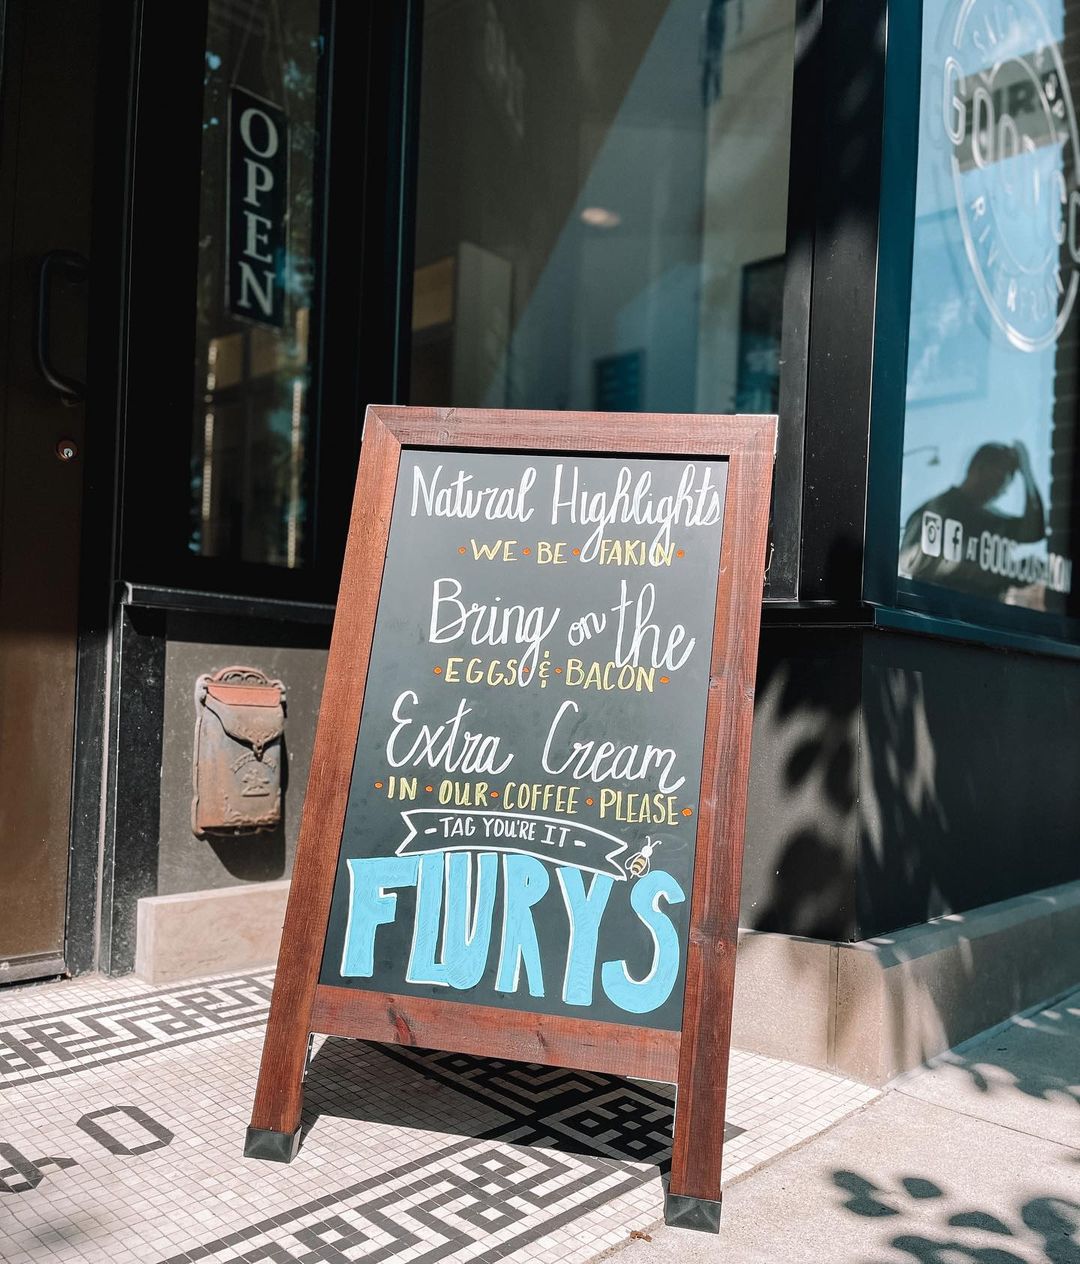 OPEN
Natural Highlights
WE • BE • FAKIN
Bring on the
• EGGS • & • BACON •
Extra Cream
• IN • OUR • COFFEE • PLEASE •
- TAG YOU'RE IT -
FLURYS
GOOD
CO
AT